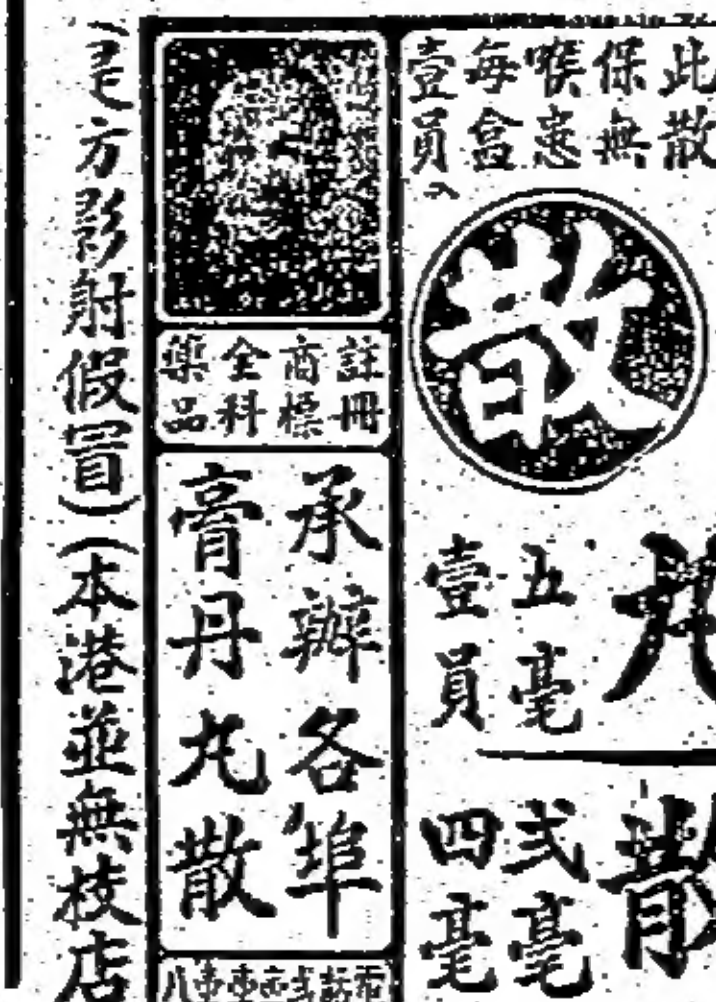 此散
保無
喉患
每盒
壹員
散
丸
五毫
壹員
散
弍毫
四毫
註冊
商標
全科
藥品
承辦各埠
膏丹丸散
方影射假冒）（本港並無枝店